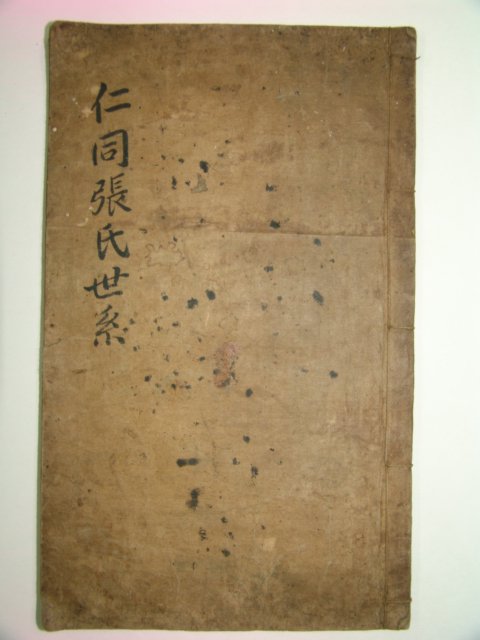 仁同張氏世系